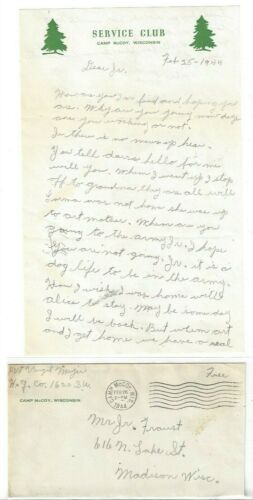 SERVICE CLUB
CAMP McCOY, WISCONSIN
Feb 25-1944
Dear Jr.
How are you I'm fine and hoping you
as. Why are you going now days
are you working or not.
Jr. there is no news up hear.
You tell doris hello for me
will you. When I went up I stop
off to grandma they as all well
Lorma was not home she was up
to art mother. When are you
going to the army Jr. I hope
you are not going. Jr. it is a
dog life to be in the army.
How I wish I was home will
alice to stay. May be some day
I will be back. But when art
and I get home we have a real
Pvt
Co. 1620 SU
CAMP McCOY, WISCONSIN
CAMP McCOY WIS.
FEB 26
1944
Free
Mr Jr. Fraust
616 N. Lake St.
Madison Wisc.